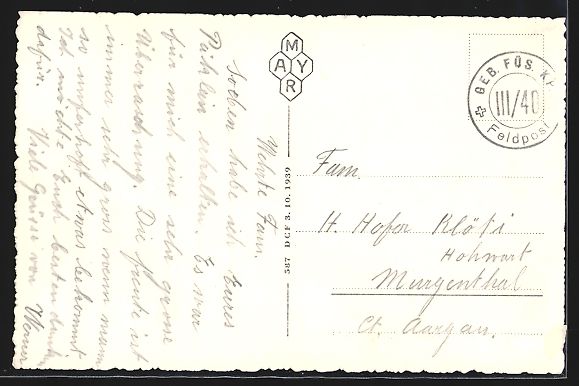 Werte Fam.
Soeben habe ich Eures
Päcklein erhalten. Es war
für mich eine sehr grosse
Überraschung. Die Freude ist
immer sehr gross wenn man
so unverhofft etwas bekommt
Ich möchte Euch bestens danken
dafür. Viele Grüsse von Werner
MAYR
587 DCF 3. 10. 1939
GEB. FÜS. KP.
III/40
Feldpost
Fam.
H. Hofer Klöti
Hohwart
Murgenthal
Ct. Aargau.